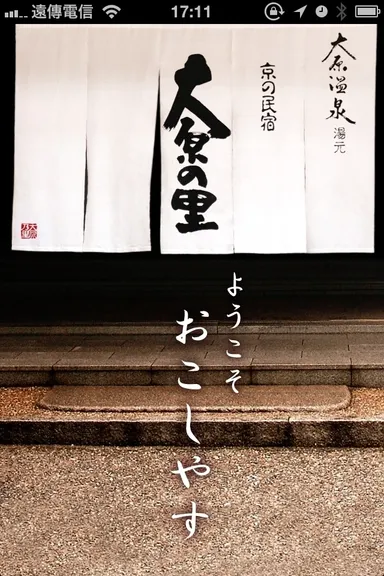 遠傳電信
17:11
大原温泉
湯元
京の民宿
大原の里
ようこそ
おこしやす